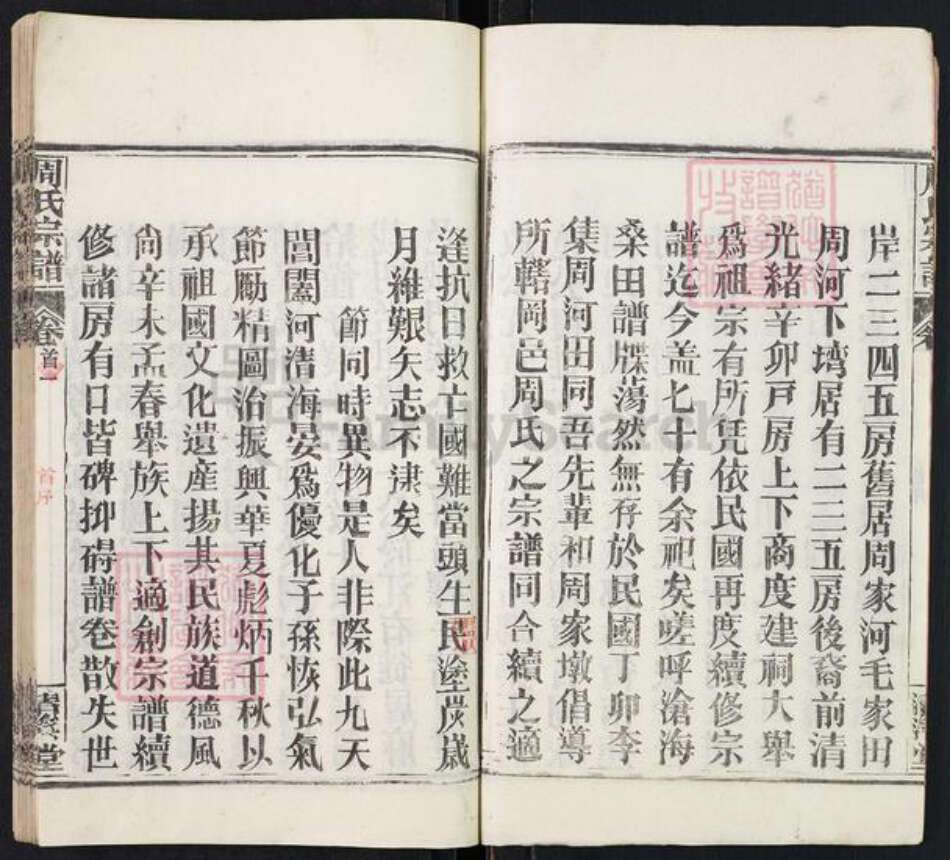 岸二三四五房舊居周家河毛家田
周河下塆居有二三五房後裔前清
光緒辛卯戸房上下商度建祠大舉
爲祖宗有所凭依民國再度續修宗
譜迄今盖七十有余祀矣嗟呼滄海
桑田譜牒蕩然無存於民國丁卯李
集周河田同吾先輩和周家墩倡導
所轄岡邑周氏之宗譜同合續之適
逢抗日救亡國難當頭生民塗炭歲
月維艱矣志不逮矣
節同時異物是人非際此九天
閶闔河清海晏爲優化子孫恢弘氣
節勵精圖治振興華夏彪炳千秋以
承祖國文化遺産揚其民族道德風
尙辛未孟春舉族上下適創宗譜續
修諸房有口皆碑抑碍譜卷散失世
周氏宗譜
卷首一
首序
堂
FamilySearch